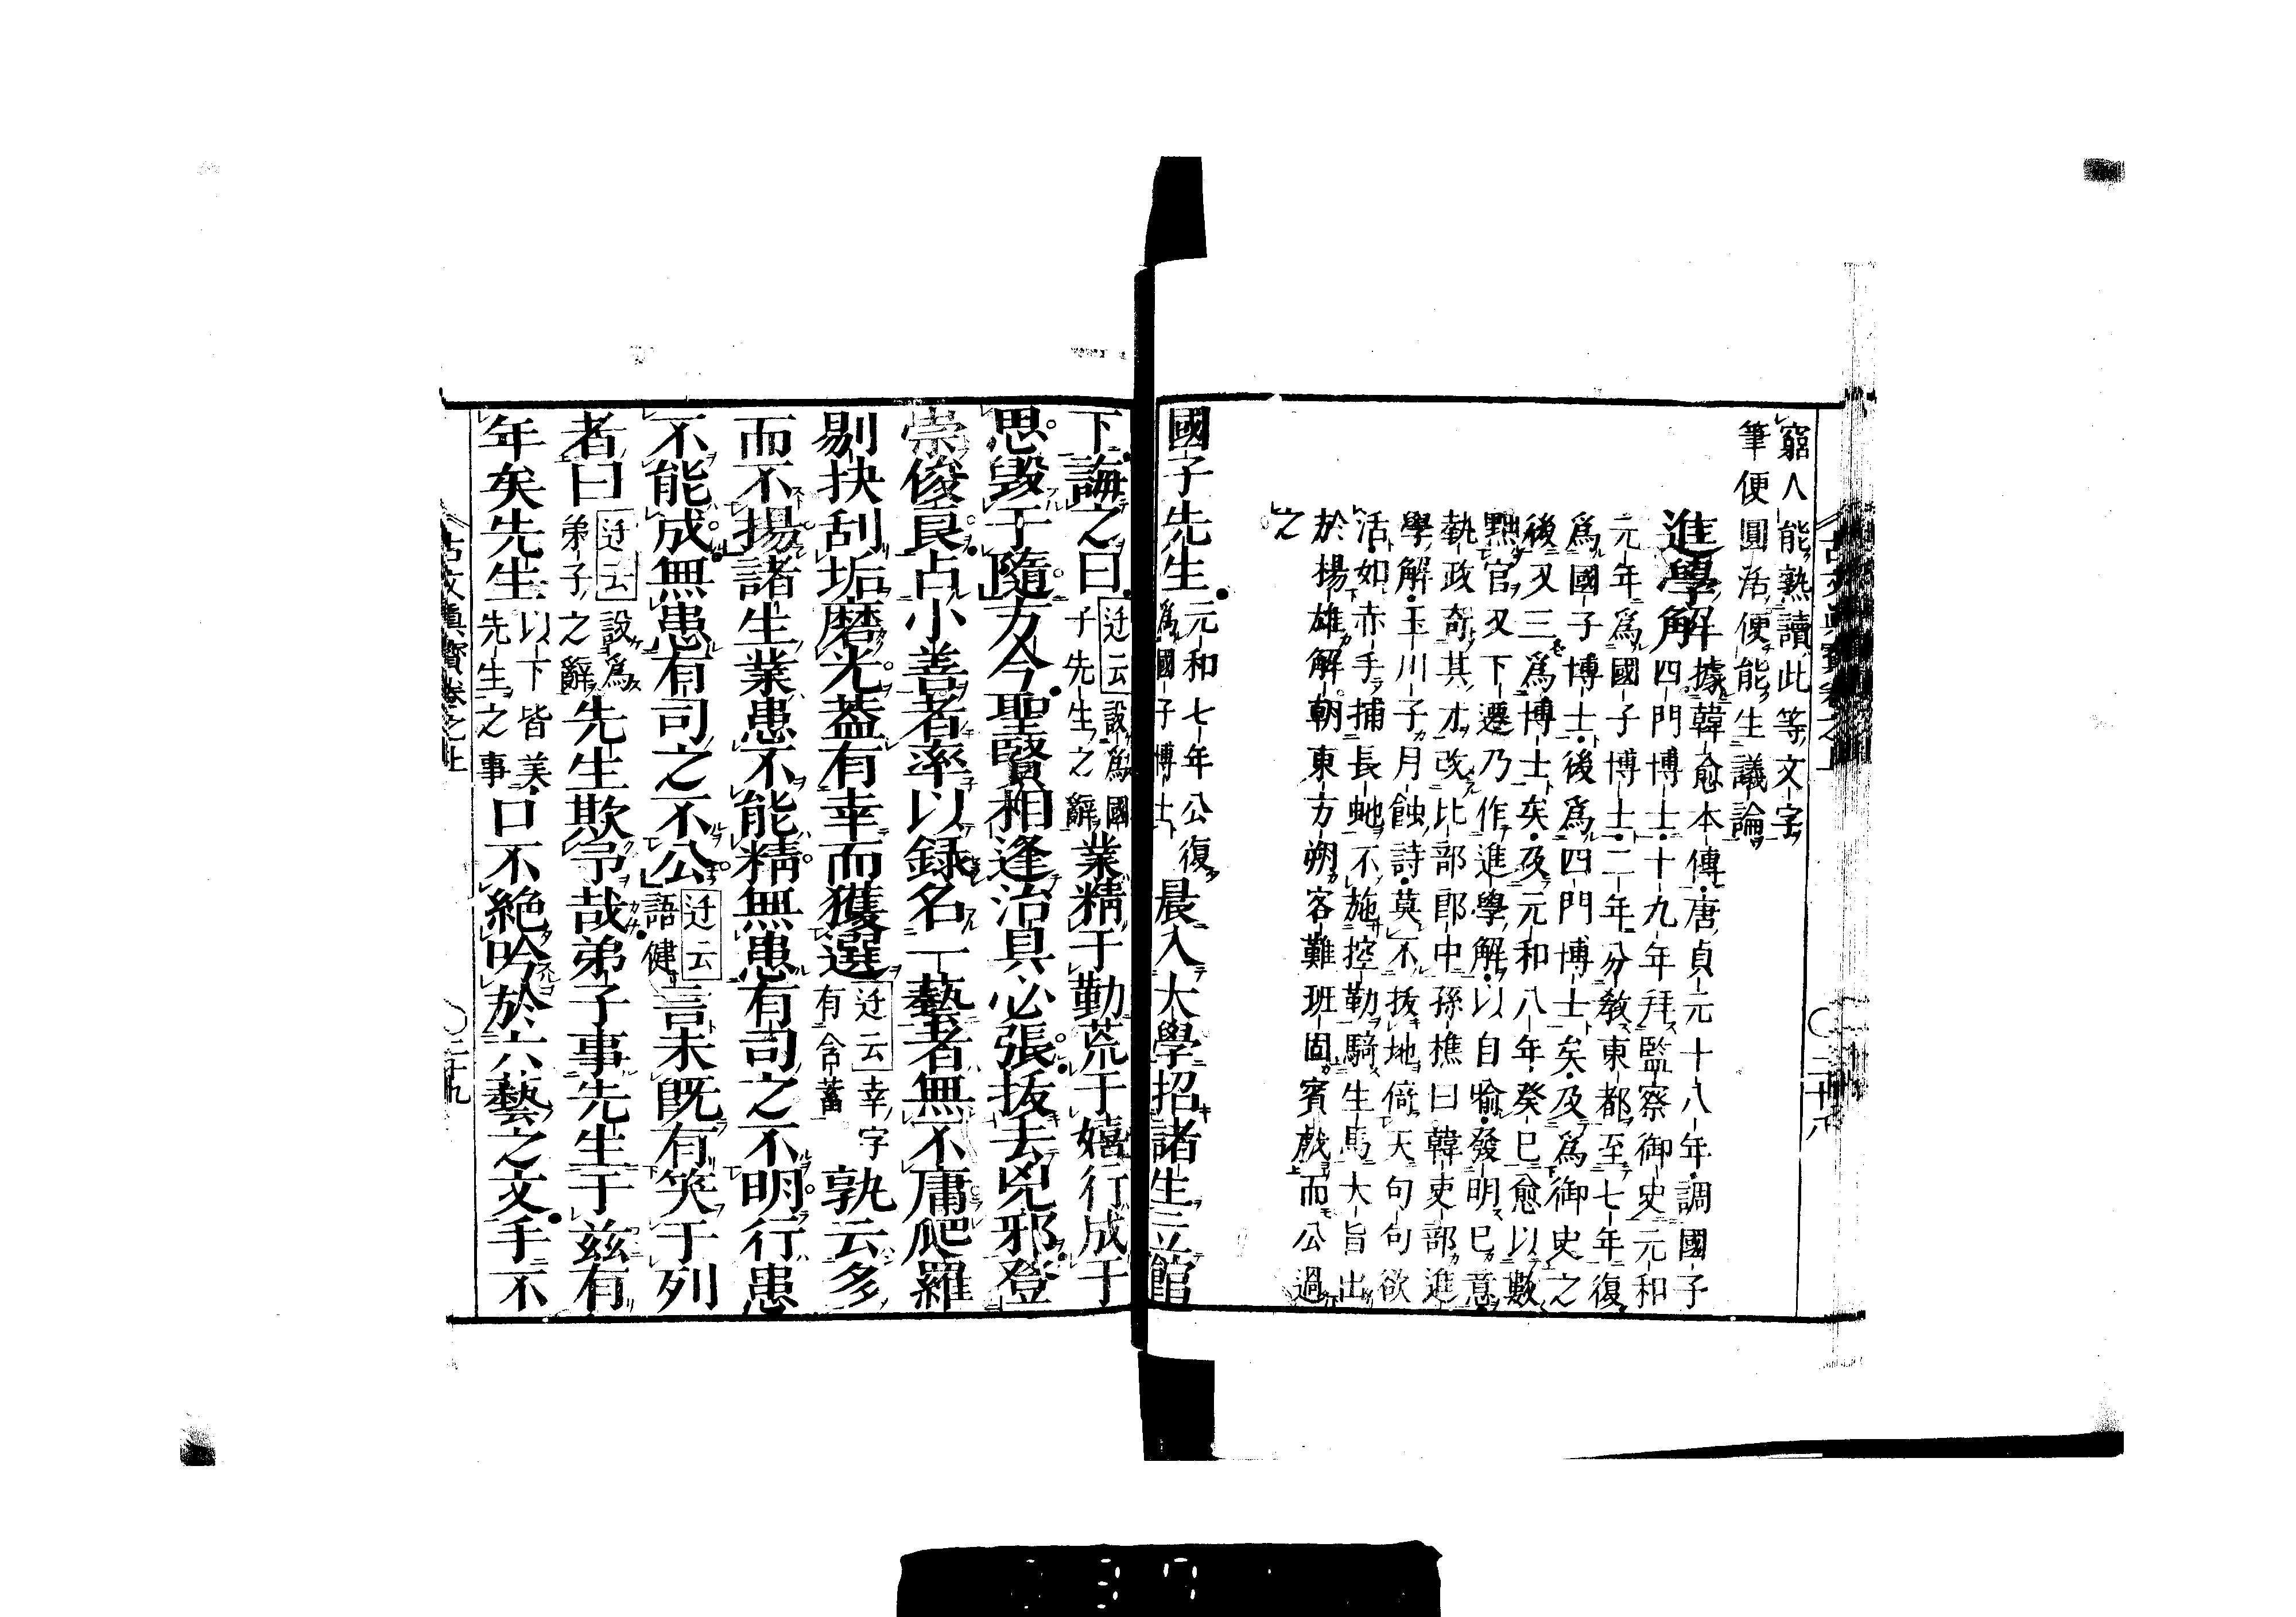 窮人能熟讀此等文字
筆便圓活便能生議論
進學解
據韓愈本傳唐貞元十八年調國子
四門博士十九年拜監察御史元和
元年爲國子博士二年分教東都至七年復
爲國子博士後爲四門博士矣及爲御史之
後又三爲博士矣及元和八年癸巳愈以數
黜官又下遷乃作進學解以自喻發明已意
執政奇其才改比部郎中孫樵曰韓吏部進
學解玉川子月蝕詩莫不拔地倚天句句欲
活如赤手捕長虵不施控勒騎生馬大旨出
於楊雄解朝東方朔客難班固賓戲而公過
之
國子先生
元和七年公復
爲國子博士
晨入大學招諸生立館
下誨之曰
迂云設爲國
子先生之辭
業精于勤荒于嬉行成于
思毀于隨方今聖賢相逢治具必張拔去兇邪登
崇俊良占小善者率以録名一藝者無不庸爬羅
剔抉刮垢磨光蓋有幸而獲選
迂云幸字
有含蓄
孰云多
而不揚諸生業患不能精無患有司之不明行患
不能成無患有司之不公
迂云
語健
言未既有笑于列
者曰
迂云設爲
弟子之辭
先生欺予哉弟子事先生于兹有
年矣先生
以下皆美
先生之事
口不絶吟於六藝之文手不
古文眞寳卷之上
二十九